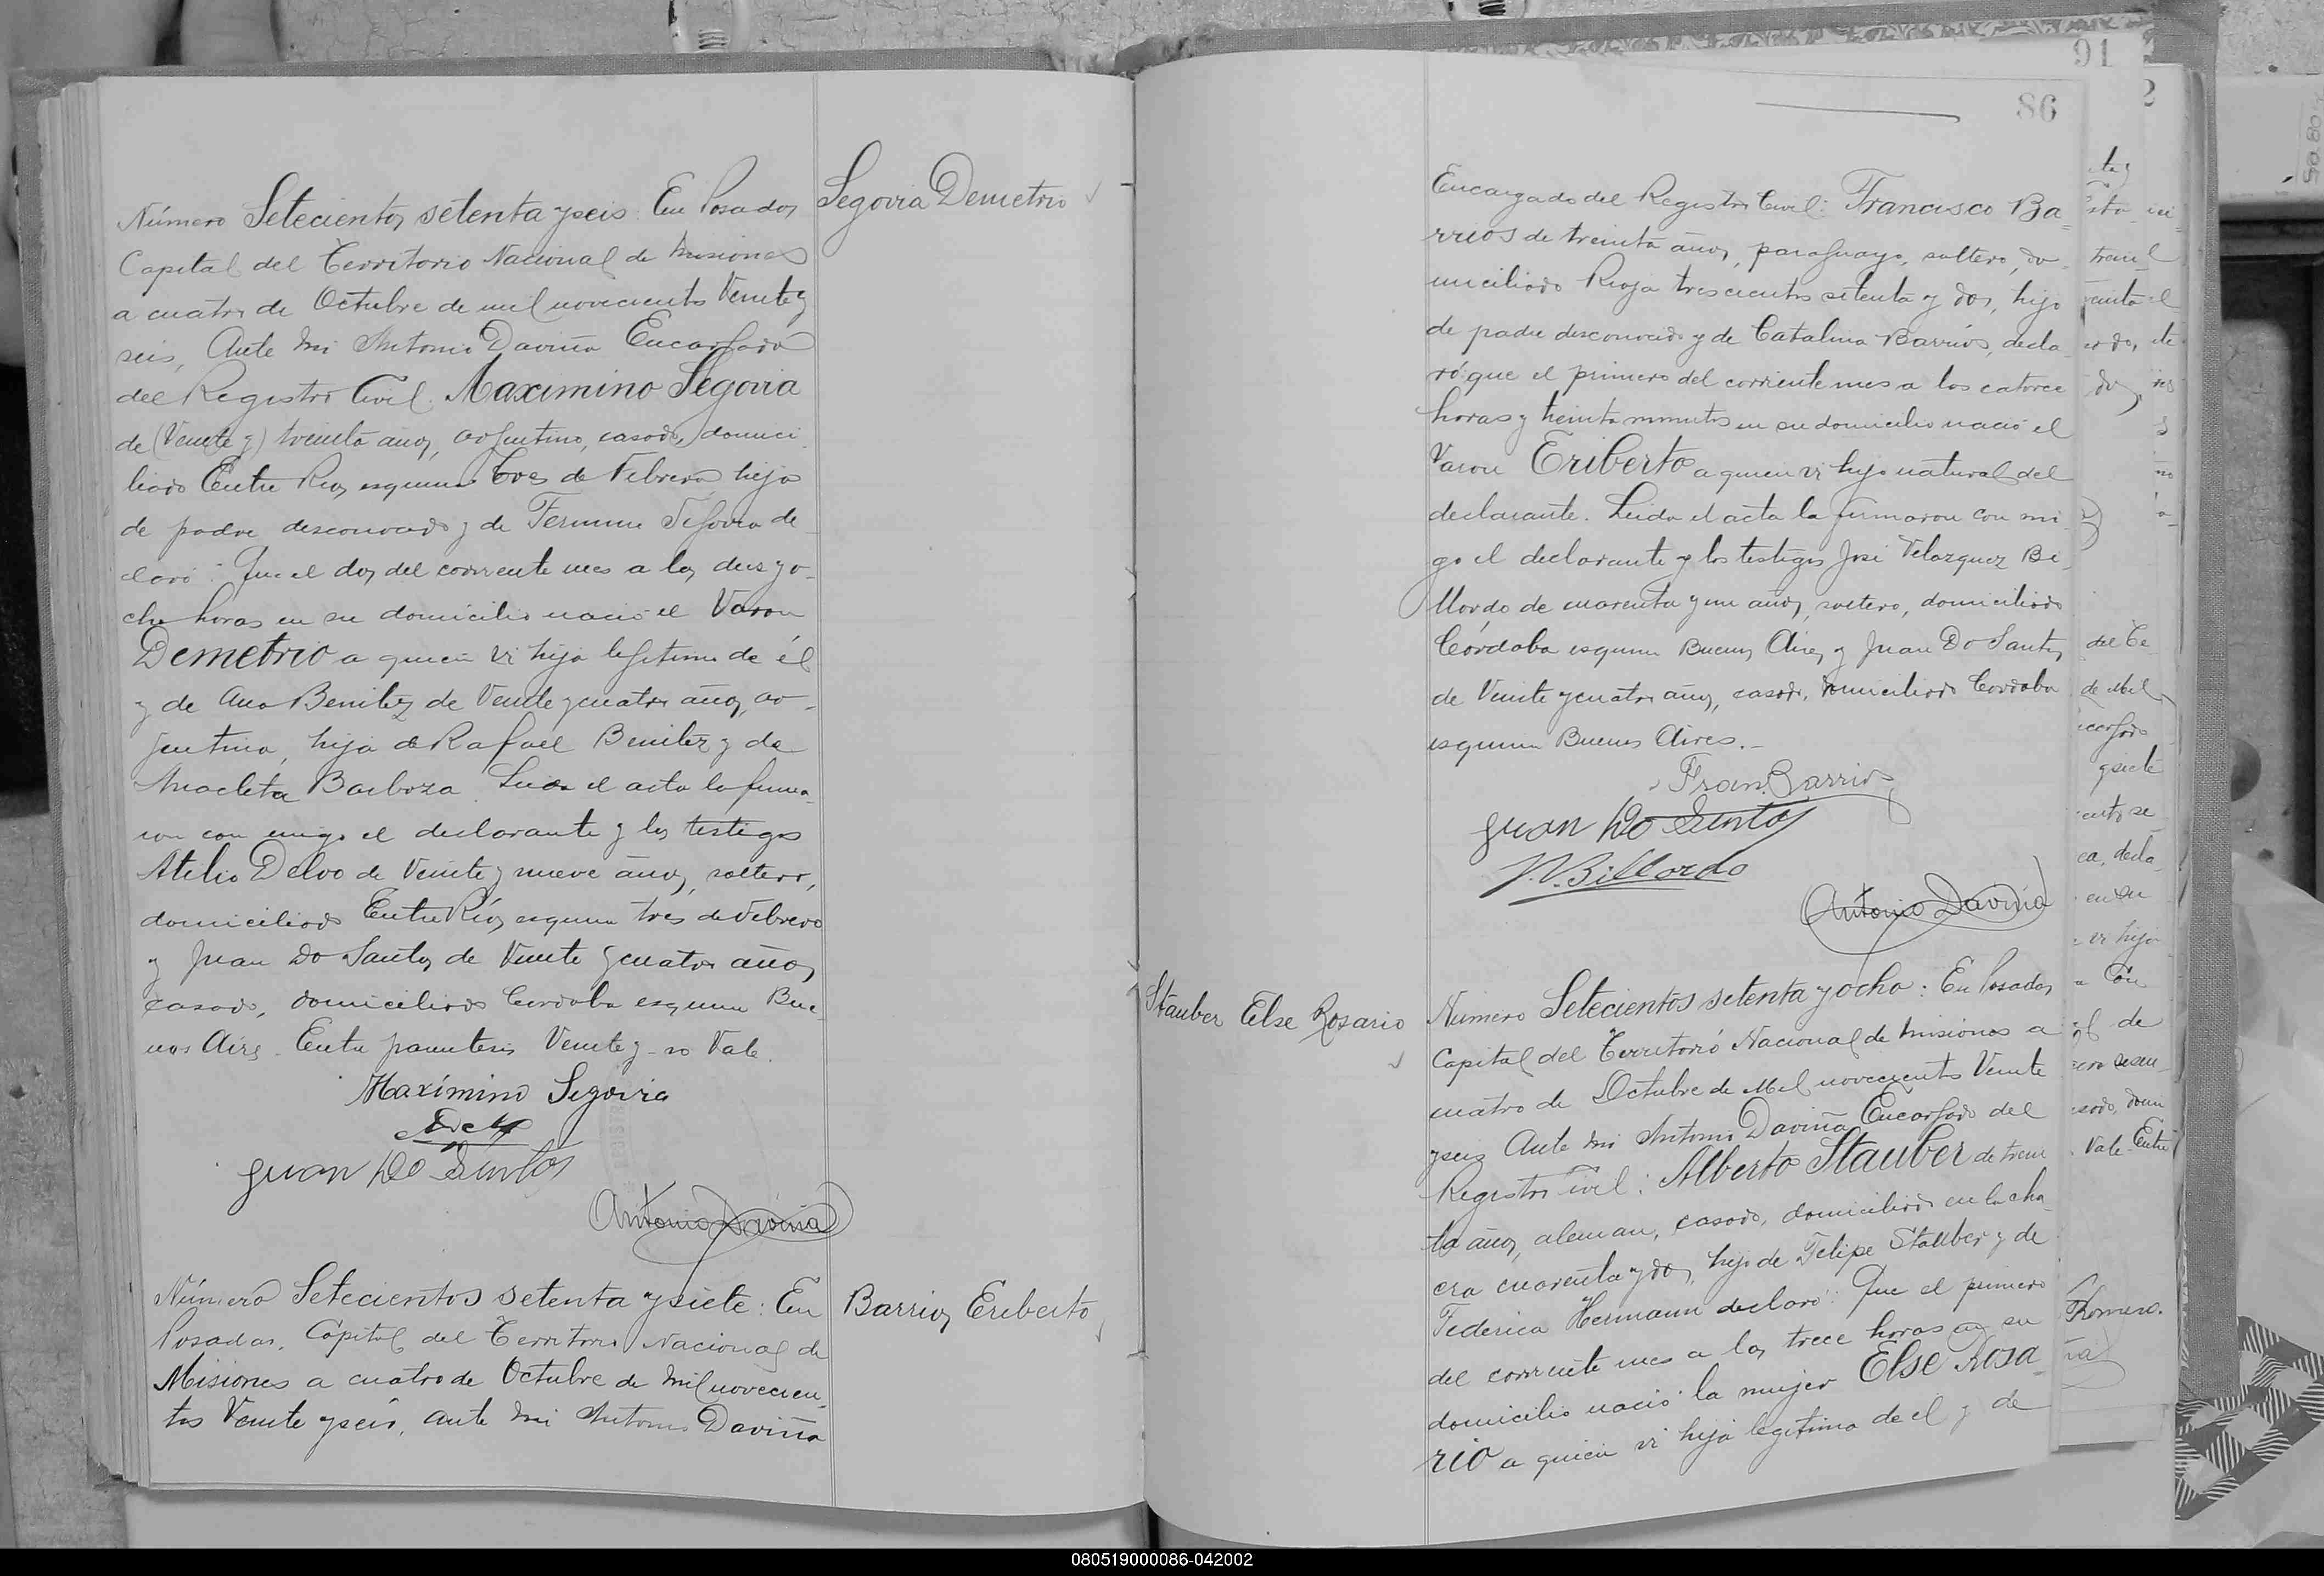 Número Setecientos setenta y seis: En Posadas
Capital del Territorio Nacional de Misiones
a cuatro de Octubre de mil novecientos Veinte y
seis, Ante mi Antonio Daviña Encargado
del Registro Civil. Maximino Segovia
de (Veinte y) treinta años, argentino, casado, domici
liado Entre Rios esquina Tres de Febrero hijo
de padre desconocido y de Fermina Segovia de
claró: Que el dos del corriente mes a las diez y o-
cho horas en su domicilio nació el Varon
Demetrio a quien vi hijo legitimo de él
y de Ana Benitez de Veinte y cuatro años, ar-
gentina, hija de Rafael Benitez y de
Anacleta Barboza. Leida el acta la firma-
ron con migo el declarante y los testigos
Atilio Delvo de Veinte y nueve años, soltero,
domiciliado Entre Ríos esquina tres de Febrero
y Juan Do Santos de Veinte y cuatro años,
casado, domiciliado Cordoba esquina Bue-
nos Aires. Entre parentesis Veinte y - no Vale.
Maxímino Segovia
Juan Do Santos
Antonio Daviña
Número Setecientos setenta y siete: En
Posadas, Capital del Territorio Nacional de
Misiones a cuatro de Octubre de mil novecien-
tos Veinte y seis, ante mi Antonio Daviña
Segovia Demetrio
Barrios Eriberto
91
2
86
Encargado del Registro Civil: Francisco Ba-
rrios de treinta años, paraguayo, soltero, do-
miciliado Rioja trescientos setenta y dos, hijo
de padre desconocido y de Catalina Barrios, decla-
ró: que el primero del corriente mes a las catorce
horas y treinta minutos en su domicilio nació el
Varon Eriberto a quien vi hijo natural del
declarante. Leida el acta la firmaron con mi-
go el declarante y los testigos José Velazquez Bi-
llordo de cuarenta y un años, soltero, domiciliado
Córdoba esquina Buenos Aires y Juan Do Santos
de Veinte y cuatro años, casado, domiciliado Cordoba
esquina Buenos Aires.-
Fran. Barrios
Juan Do Santos
J.V. Billordo
Antonio Daviña
Stauber Else Rosario
Número Setecientos setenta y ocho: En Posadas
Capital del Territorió Nacional de Misiones a
cuatro de Octubre de Mil novecientos Veinte
y seis Ante mi Antonio Daviña Encargado del
Registro Civil: Alberto Stauber de trein
ta años, aleman, casado, domiciliado en la cha
cra cuarenta y dos, hijo de Felipe Stauber y de
Federica Hermann declaró: Que el primero
del corriente mes a las trece horas en su
domicilio nació la mujer Else Rosa-
rio a quien vi hija legítima de el y de
del Te-
de Mil
y siete
en su
vi hija
de
Vale Entre
080519000086-042002